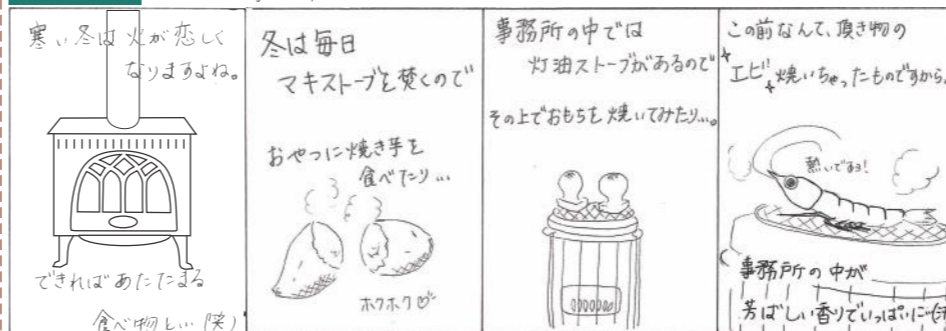 寒い冬は火が恋しく
なりますよね。
できればあたたまる
食べ物と… (笑)
冬は毎日
マキストーブを焚くので
おやつに焼き芋を
食べたり…
ホクホク♡
事務所の中では
灯油ストーブがあるので
その上でおもちを焼いてみたり…。
この前なんて、頂き物の
エビ焼いちゃったものですから、
熱いであろ!
事務所の中が
芳ばしい香りでいっぱいに